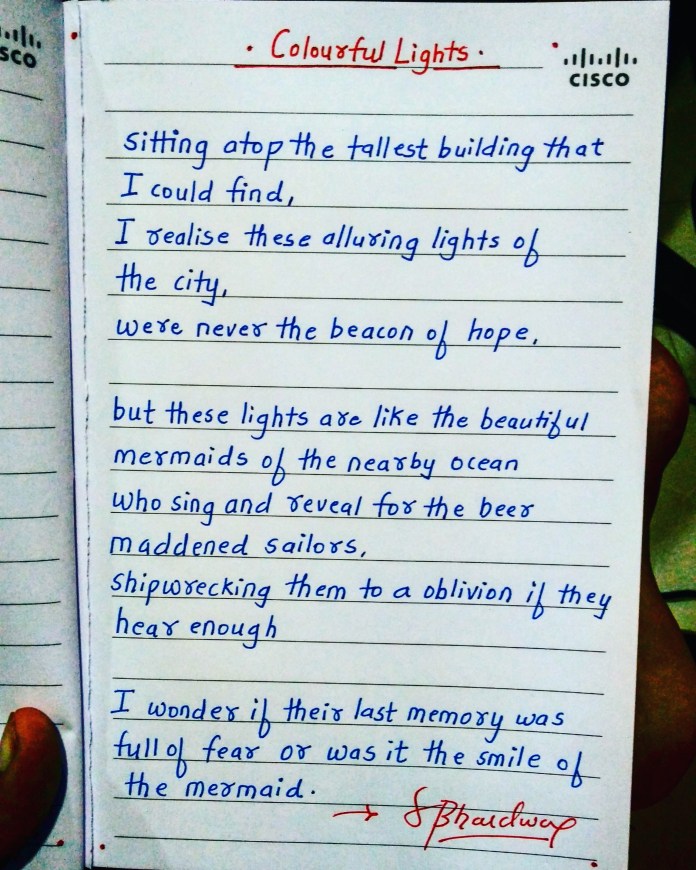 SCO
· Colourful Lights ·
CISCO
Sitting atop the tallest building that
I could find,
I realise these alluring lights of
the city,
were never the beacon of hope,
but these lights are like the beautiful
mermaids of the nearby ocean
who sing and reveal for the beer
maddened sailors,
shipwrecking them to a oblivion if they
hear enough
I wonder if their last memory was
full of fear or was it the smile of
the mermaid.
→ SBhardwaj